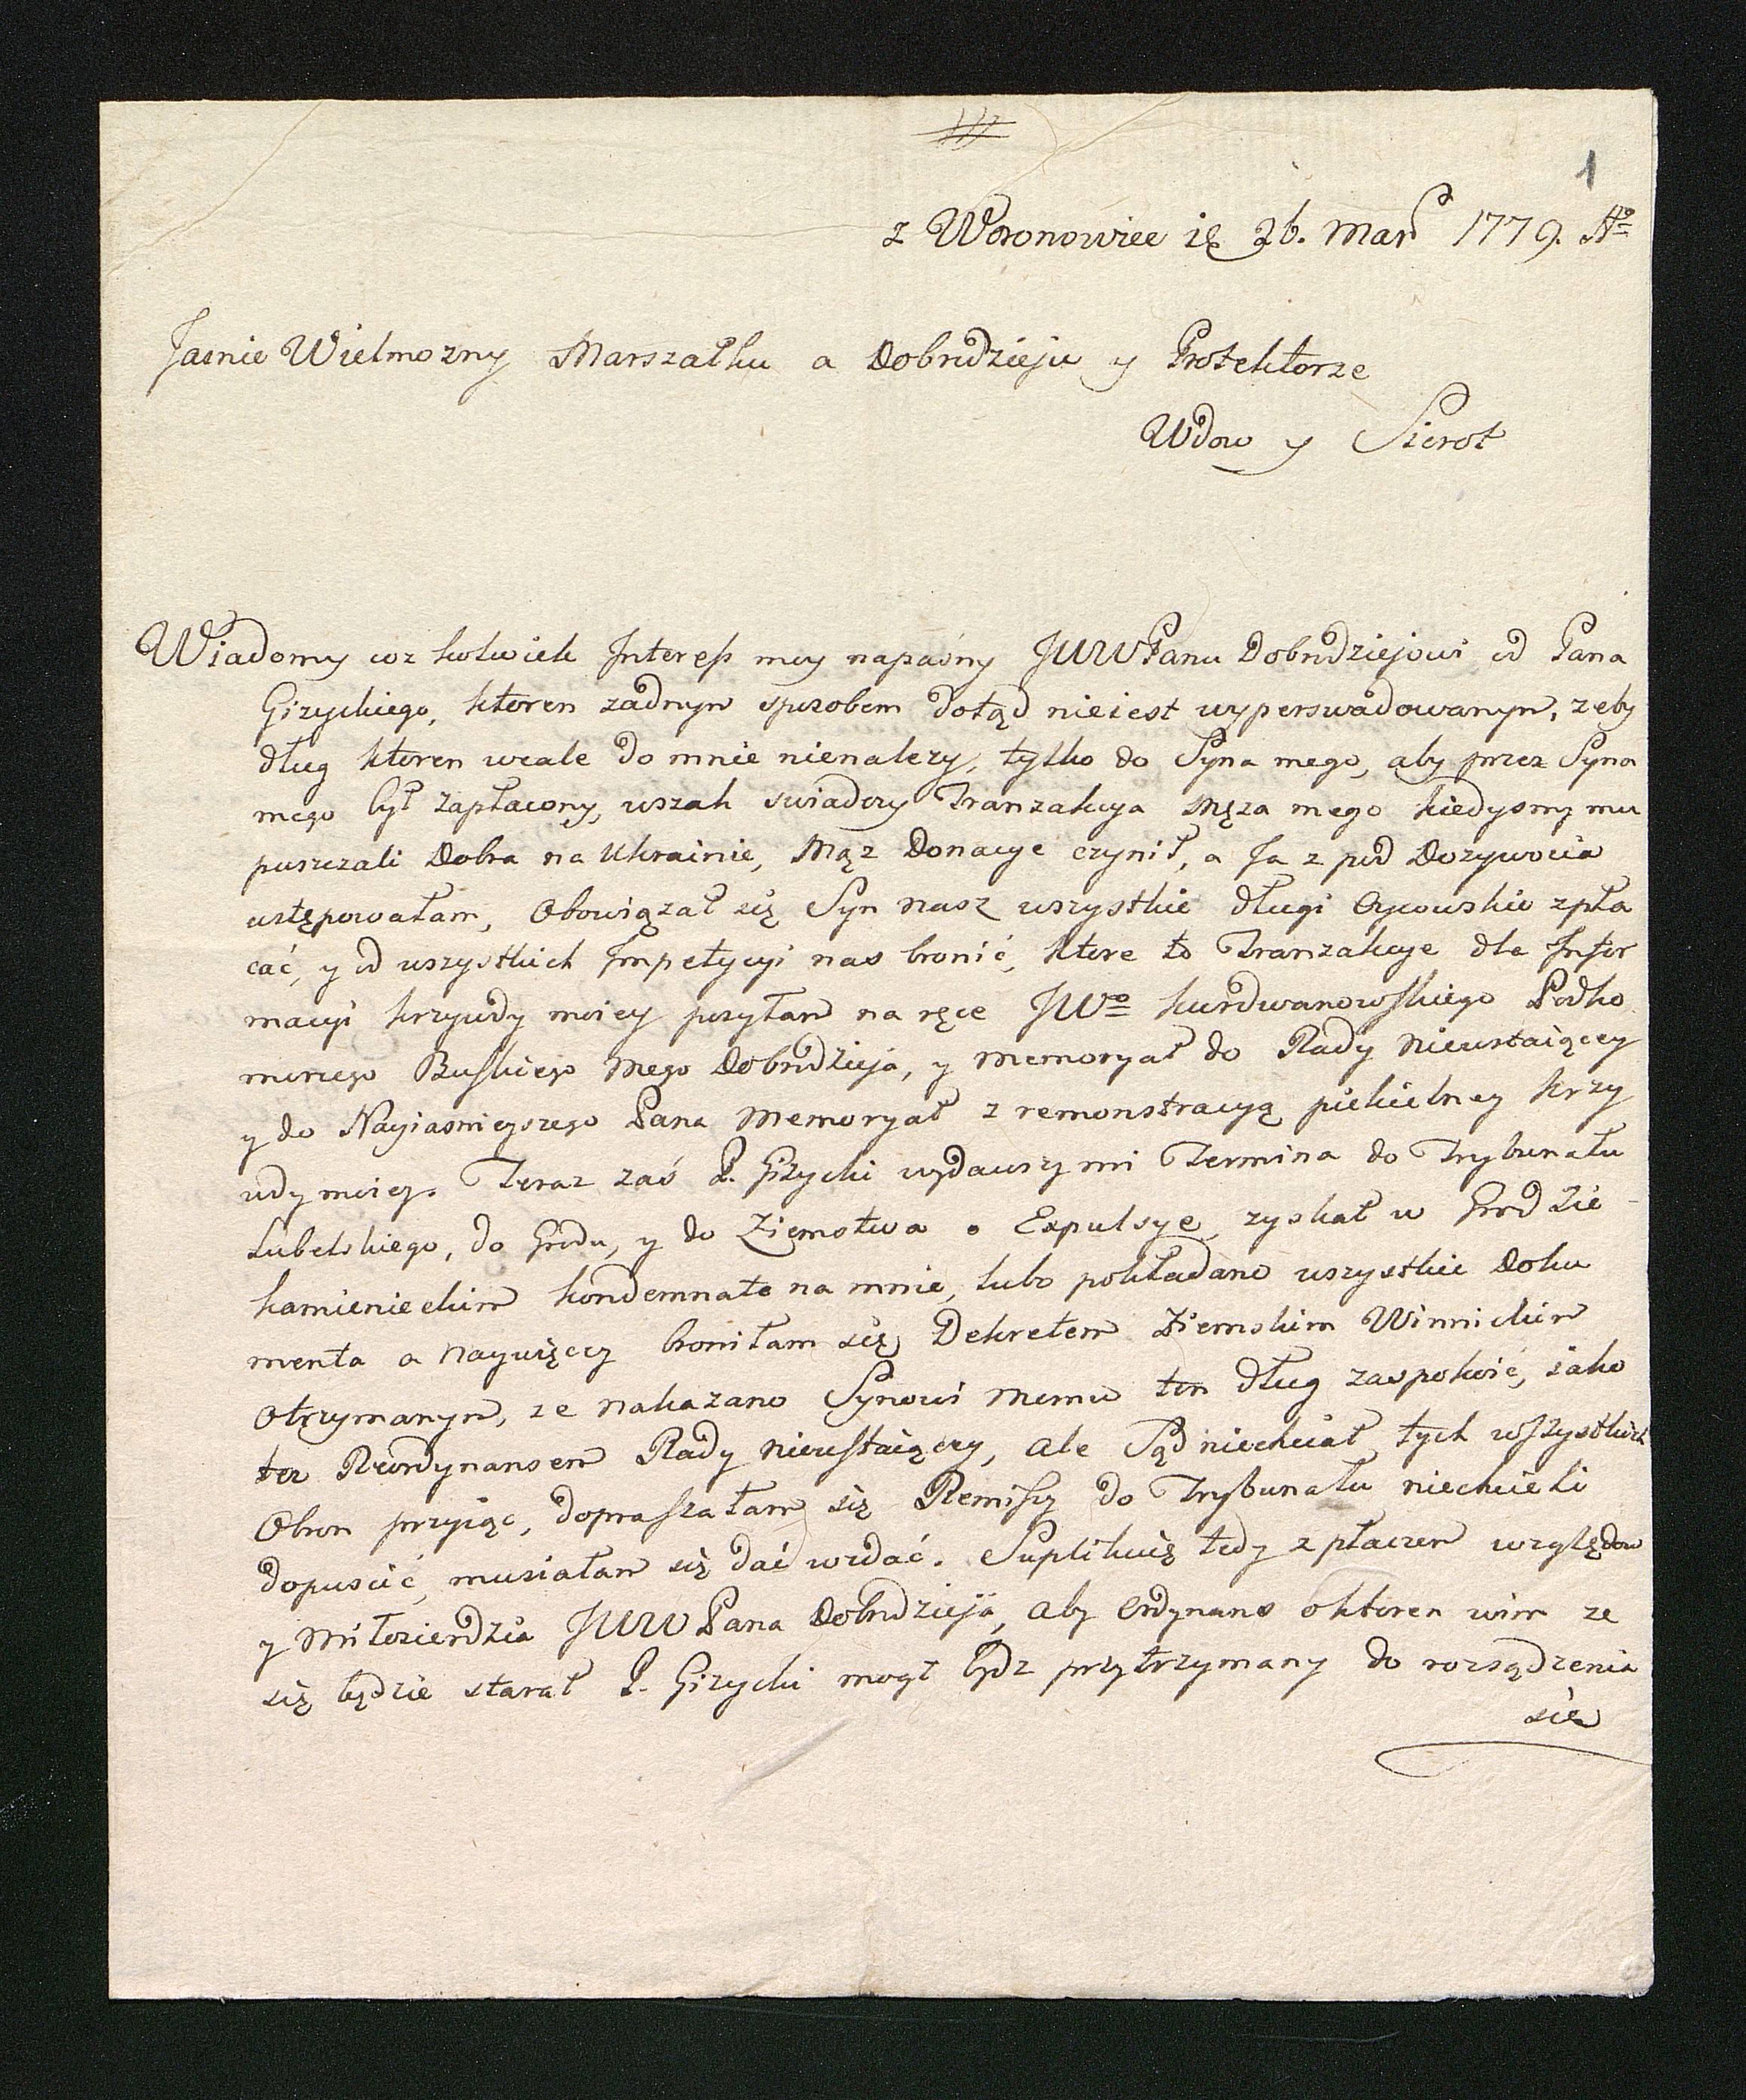 1
z Woronowiec 26. Mar 1779. Ao
Jasnie Wielmozny Marszałku a Dobrodzieju y Protektorze
Wdow y Sierot
Wiadomy coz kolwiek Interess moy napasny JWWPanu Dobrodziejowi od Pana
Gizyckiego, ktoren zadnym sposobem dotąd nieiest wyperswadowanym, zeby
dług ktoren wcale do mnie nienalezy, tylko do Syna mego, aby przez Syna
mego był zapłacony, wszak swiadczy Tranzakcya Męza mego kiedysmy mu
puszczali Dobra na Ukrainie, Mąz Donacye czynił, a Ja z pod Dozywocia
ustępowałam, Obowiązał się Syn nasz wszystkie długi Oycowskie zpła
cać, y od wszystkich Impetycyi nas bronić, ktore to Tranzakcye dla Infor
macyi krzywdy moiey posyłam na ręce JWo kurdwanowskiego Podko
morzego Buskiego Mego Dobrodzieja, y Memoryał do Rady Nieustaiącey
y do Nayiasnieyszego Pana Memoryał z remonstracyą piekielney krzy
wdy moiey. Teraz zaś P. Gizycki wydawszy mi Termina do Trybunału
Lubelskiego, do Grodu, y do Ziemstwa o Expulsye, zyskał w Grodzie
kamienieckim kondemnate na mnie, lubo pokładano wszystkie Doku
menta a naywięcey broniłam się Dekretem Ziemskim Winnickim
Otrzymanym, ze nakazano Synowi Memu ten dług zaspokoić, iako
tez Reordynansem Rady Nieustaiącey, ale Sąd niechciał tych wszystkich
Obron przyiąc, dopraszałam się Remissy do Trybunału niechcieli
dopuscić, musiałam się dać wzdać. Suplikuię tedy z płaczem względow
y Miłosierdzia JWW Pana Dobrodzieja, aby Ordynans oktoren wiem ze
się będzie starał P. Gizycki mogł bydz przytrzymany do rozsądzenia
się